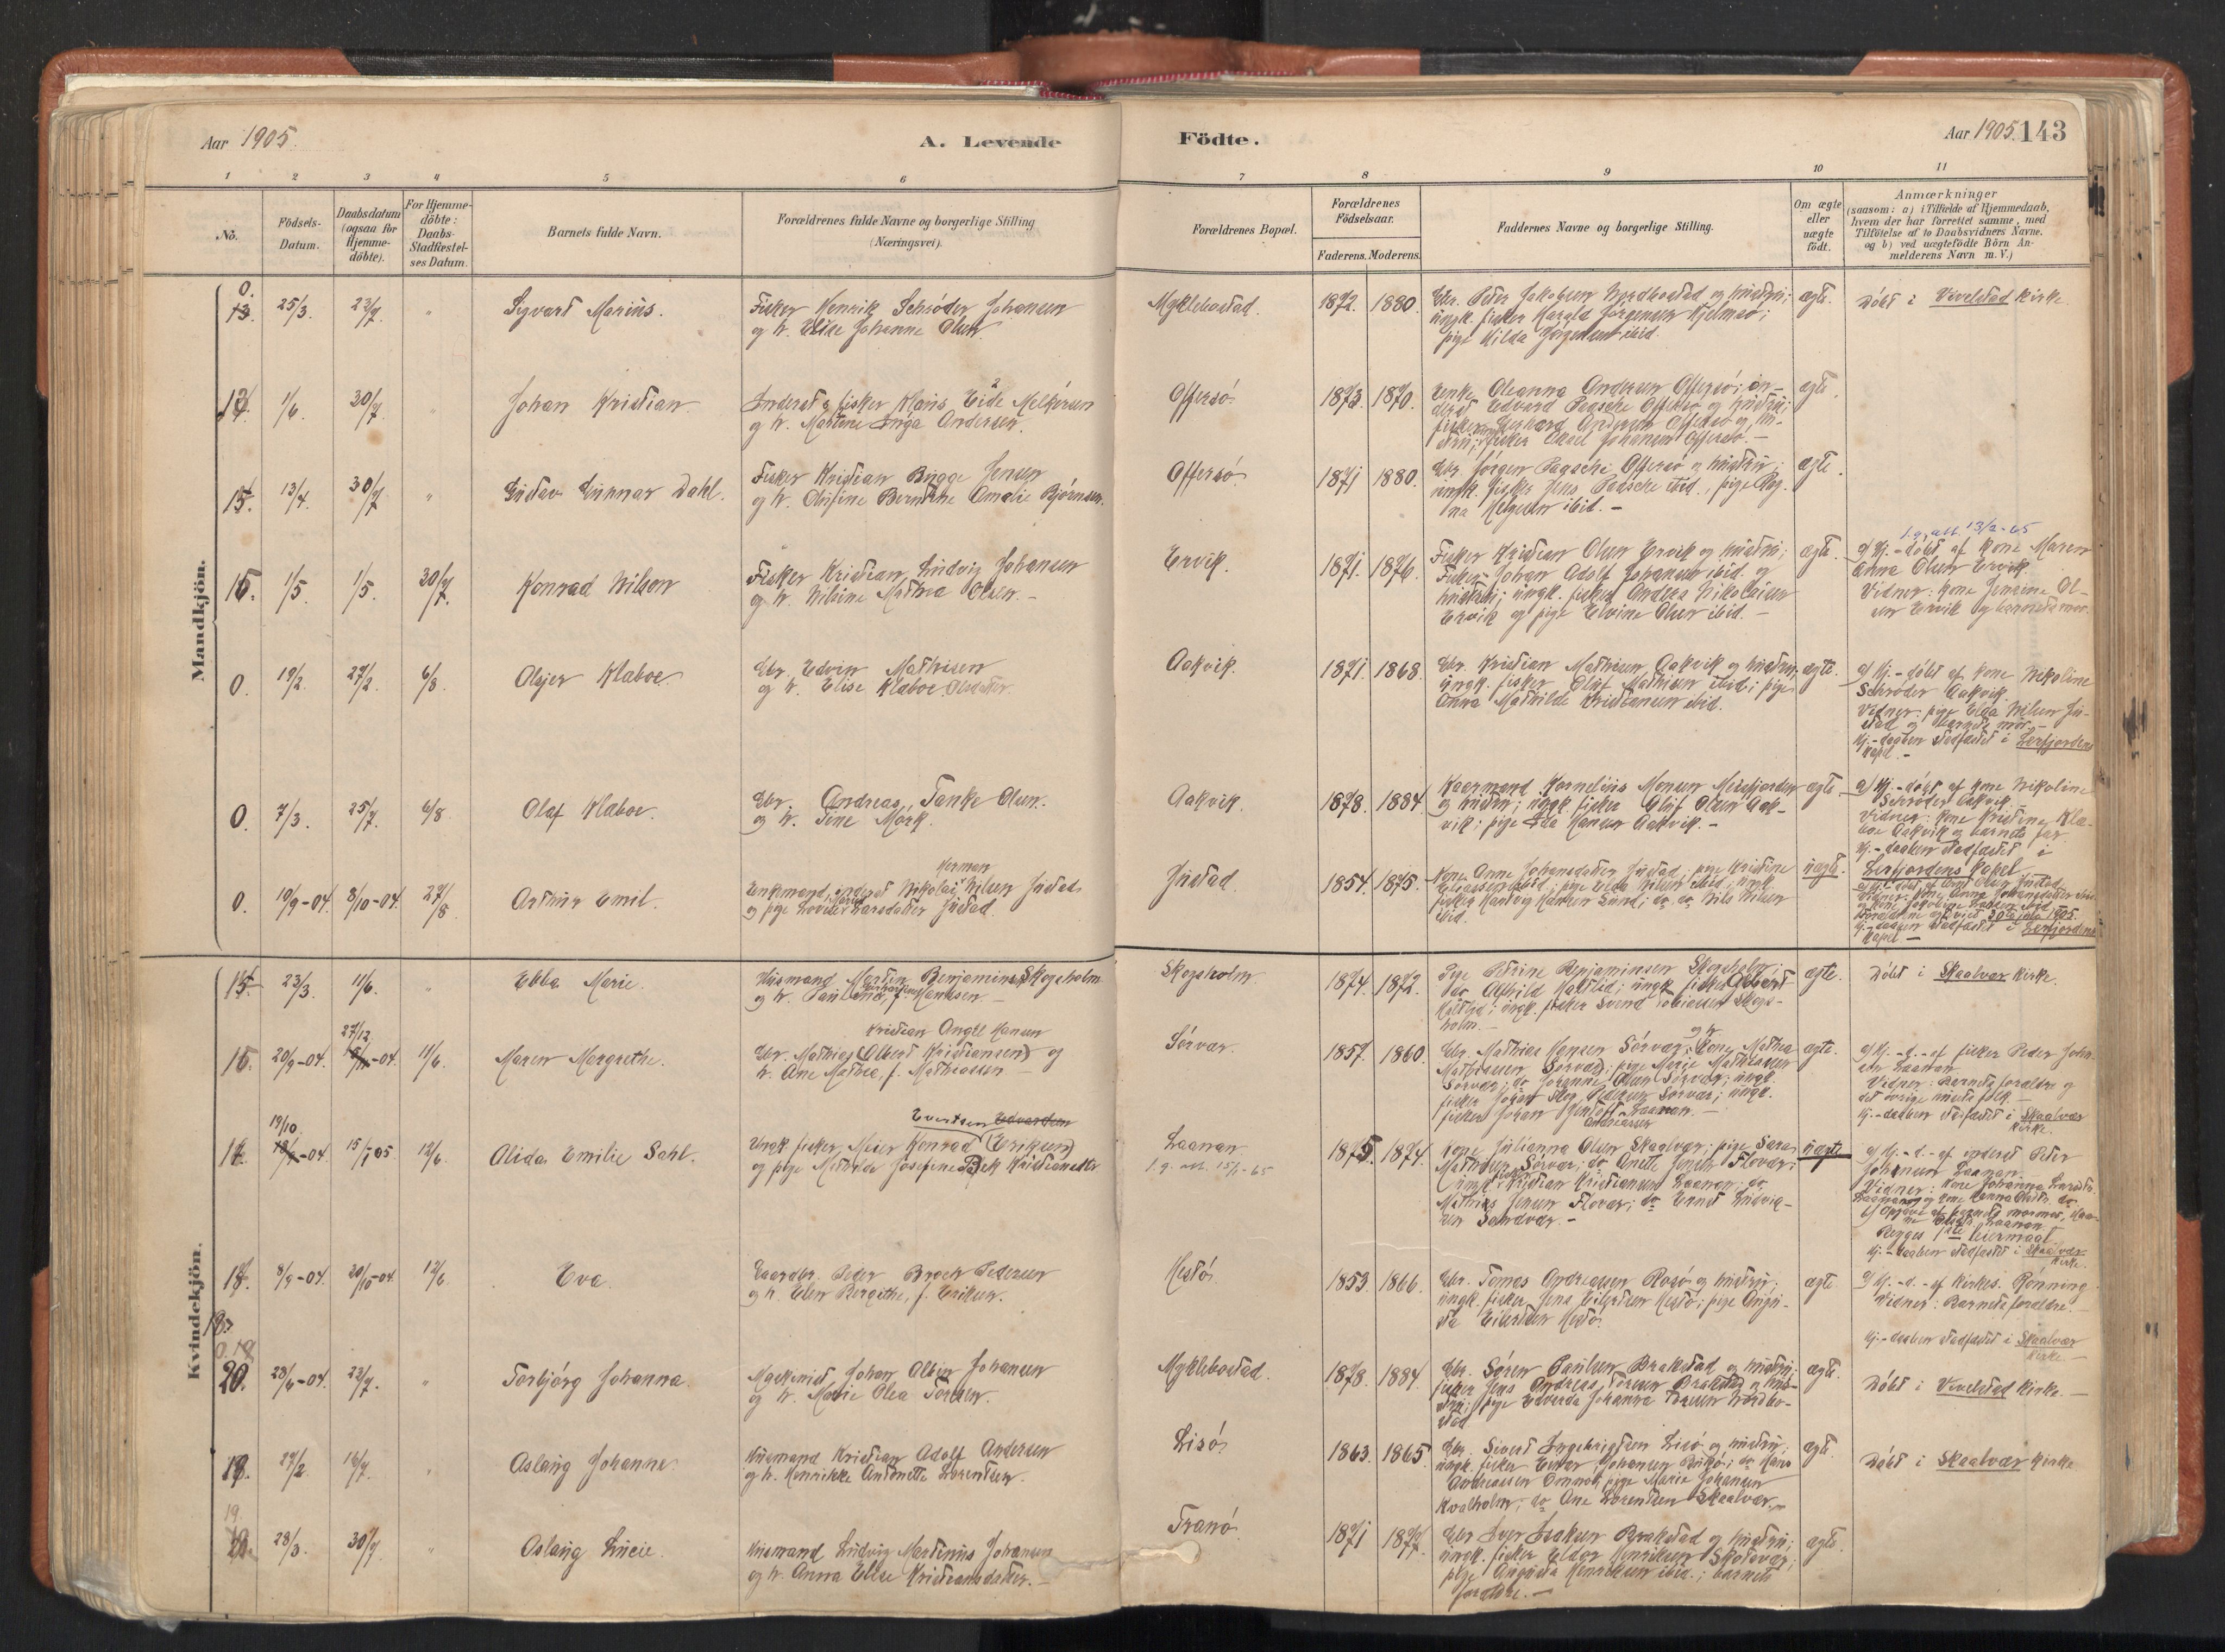 Aar 1905.
A. Levende
Födte.
Aar 1905. 143
1 2 3 4 5 6 7 8 9 10 11
No.
Födsels-
Datum.
Daabsdatum
(ogsaa for
Hjemme-
döbte).
For Hjemme-
döbte:
Daabs-
Stadfæstel-
ses Datum.
Barnets fulde Navn.
Forældrenes fulde Navne og borgerlige Stilling
(Næringsvei).
Forældrenes Bopæl.
Forældrenes
Födselsaar.
Faderens. Moderens.
Faddernes Navne og borgerlige Stilling.
Om ægte
eller
uægte
födt.
Anmærkninger
(saasom: a) i Tilfælde af Hjemmedaab,
hvem der har forrettet samme, med
Tilföielse af to Daabsvidners Navne.
og b) ved uægtefödte Börn An-
melderens Navn m. V.)
Mandkjön.
0.
13. 25/3. 23/7. " Sigvart Marius.
Fisker Henrik Schrøder Johansen
og h. Elise Johanne Olsen.
Myklebostad. 1872. 1880.
Gbr. Peter Jakobsen Nordbostad og hustru;
ungk. fisker Harald Jørgensen Hjelmsø;
pige Hilda Jørgensen ibid.
ægte.
Døbt i Vivelstad Kirke.
14. 1/6. 30/7. " Johan Kristian.
Inderst & fisker Klaus Eide Melkersen
og h. Martine Inga Andersen.
Offersø. 1873. 1870.
Enke Oleanna Andersen Offersø; in-
derst Edvard Paasche Offersø og hustru;
fisker Gerhard Andersen Offersø og hu-
stru; fisker Aksel Johansen Offersø. –
ægte.
15. 13/4. 30/7 " Gustav Gunnar Dahl.
Fisker Kristian Brygge Jensen
og h. Olufine Berntine Amalie Bjørnsen.
Offersø 1871 1880.
Gbr. Jørgen Paasche Offersø og hustru;
ungk. fisker Jens Paasche ibid., pige Rag-
na Helgesen ibid. –
ægte.
16. 1/5. 1/5. 30/7. Konrad Nilsen
Fisker Kristian Ludvig Johansen
og h. Nilsine Mathea Olsen. –
Ervik. 1871. 1876.
Fisker Kristian Olsen Ervik og hustru;
Fisker Johan Adolf Johansen ibid. og
hustru; ungk. fisker Anders Nikolaisen
Ervik og pige Elvine Olsen ibid. –
ægte.
l.g. att. 13/2-65
a) Hj.-døbt af kone Maren
Anna Olsen Ervik.
Vidner: kone Jensine Ol-
sen Ervik og barnets mor.
0. 19/2. 27/2. 6/8 Olsjer Klaboe.
Gbr. Edvin Mathisen
og h. Elise Klaboe Olsdatter.
Aakvik. 1871. 1868.
Gbr. Kristian Mathisen Aakvik og hustru;
ungk. fisker Oluf Mathisen ibid.; pige
Anna Mathilde Kristiansen ibid.
ægte.
a) Hj.-døbt af kone Nikoline
Schrøder Aakvik.
Vidner: pige Elda Nilsen Ju-
stad og barnets mor. –
Hj.-daaben stadfæstet i Leirfjordens
kapel. –
0. 7/3. 25/7. 6/8 Olaf Klaboe.
Gbr. Andreas Tanke Olsen.
og h. Tine Mork.
Aakvik. 1878. 1884.
Kaarmand Kornelius Monsen Meisfjorden
og hustru; ungk. fisker Oluf Olsen Aak-
vik; pige Ida Hansen Aakvik. –
ægte.
a) Hj.-døbt af kone Nikoline
Schrøder Aakvik.
Vidner: kone Kristine Kla-
boe Aakvik og barnets far
Hj.-daaben stadfæstet i
Leirfjordens Kapel
0. 19/9-04. 8/10-04. 27/8 Arthur Emil.
Herman
Enkemand, inderst Nikolai Nilsen Justad
og pige Lovise Larsdatter Justad.
Justad. 1854. 1875.
Kone Anne Johansdatter Justad, pige Kristine
Eliassen ibid; pige Elda Nilsen ibid; ungk.
fisker Hartvig Hansen Sund; do do Nils Nilsen
ibid.
uægte.
Hj.-daaben stadfæstet i Leirfjordens
Kapel –
Kvindekjön.
15. 23/3. 11/6. " Ebba Marie.
Husmand Martin Benjamins. Skogsholm
og h. Pauline, f. Hansen. –
Skogsholm. 1874. 1872.
Pige Petrine Benjaminsen Skogsholm;
do Alfhild Hattlid; ungk. fisker Osvart
Hattlid; ungk. fisker Svend Tobiassen Skogs-
holm. –
ægte.
Døbt i Skaalvær Kirke.
27/12
16. 20/9-04. 11/6. Maren Margrethe.
Kristian Angel Hansen
Gbr. Mathias (Albert Kristiansen) og
h. Ane Mathea, f. Mathiassen –
Sørvær. 1857. 1860.
Gbr. Mathias Hansen Sørvær; kone Mathea
Mathiassen Sørvær; pige Marie Mathiassen
Sørvær; do Johanne Olsen Sørvær; ungk.
fisker Johan Skog Pedersen Sørvær; ungk.
fisker Johan Bentoft Laanan. –
ægte.
a) Hj.-d.-af fisker Peder Johan-
sen Laanan
Vidner: Barnets forældre og
det øvrige husets folk. –
Hj.-daaben stadfæstet i Skaalvær
Kirke.
19/10
17. 15/1 05 12/6. Olida Emilie Dahl.
Evertsen Edvardsen
Ungk. fisker Meier Konrad (Eriksen)
og pige Mathilde Josefine Bek Kristiansdtr
Laanan 1875. 1874.
l.g. att. 15/1-65
Andreassen
Kone Julianna Olsen Skaalvær; pige Sara
Mathisen Sørvær; do Anette Jensen Flovær;
ungk. Kristian Kristiansen Laanan; do
Mathias Jensen Flovær; do Ernst Ludvig-
sen Sandvær. –
uægte
a) Hj.-d.-af inderst Peter
Johansen Laanan.
Begges 1ste leiermaal
Hj.-daaben stadfæstet i Skaalvær
Kirke.
18. 8/9-04. 20/10-04. 12/6. Eva.
Gaardbr. Peder Broch Pedersen
og h. Elen Bergithe, f. Eriksen.
Hestø. 1853. 1866.
Gbr. Tomas Andreassen Rosø og hustru;
ungk. fisker Jens Eilertsen Hestø; pige Augu-
sta Eilertsen Hestø.
ægte
a) Hj.-d.-af kirkes. Rønning
Vidner: Barnets forældre. –
Hj.-daaben stadfæstet i Skaalvær
Kirke –
20. 28/6-04. 23/7. " Torbjørg Johanna.
Maskinist Johan Albin Johansen
og h. Marie Olea Toresen.
Myklebostad. 1878. 1884.
Gbr. Søren Paulsen Brakstad og hustru;
fisker Jens Andreas Toresen Brakstad og hu-
stru; pige Edvarda Johanna Toresen Nordbo-
stad
ægte.
Døbt i Vivelstad Kirke. –
19. 27/2. 16/7. " Aslaug Johanne
Husmand Kristian Adolf Andersen
og h. Henrikke Antonette Lorentsen.
Lisø. 1863. 1865.
Gbr. Sivert Ingebrigtsen Lisø og hustru;
ungk. fisker Einar Johansen Buksø; do Hans
Andreassen Omnøt; pige Marie Johansen
Kvalholm; do Ane Lorentsen Skaalvær. –
ægte
Døbt i Skaalvær Kirke
19.
20. 28/3. 30/7. " Aslaug Lucie.
Husmand Ludvig Martinus Johansen
og h. Anna Elise Kristiansdatter. –
Tranø. 1871 1877.
Gbr. Iver Isaksen Brakstad og hustru;
ungk. fisker Eldor Henriksen Skotsvær;
pige Augusta Henriksen ibid.; barnets
forældre. –
ægte.